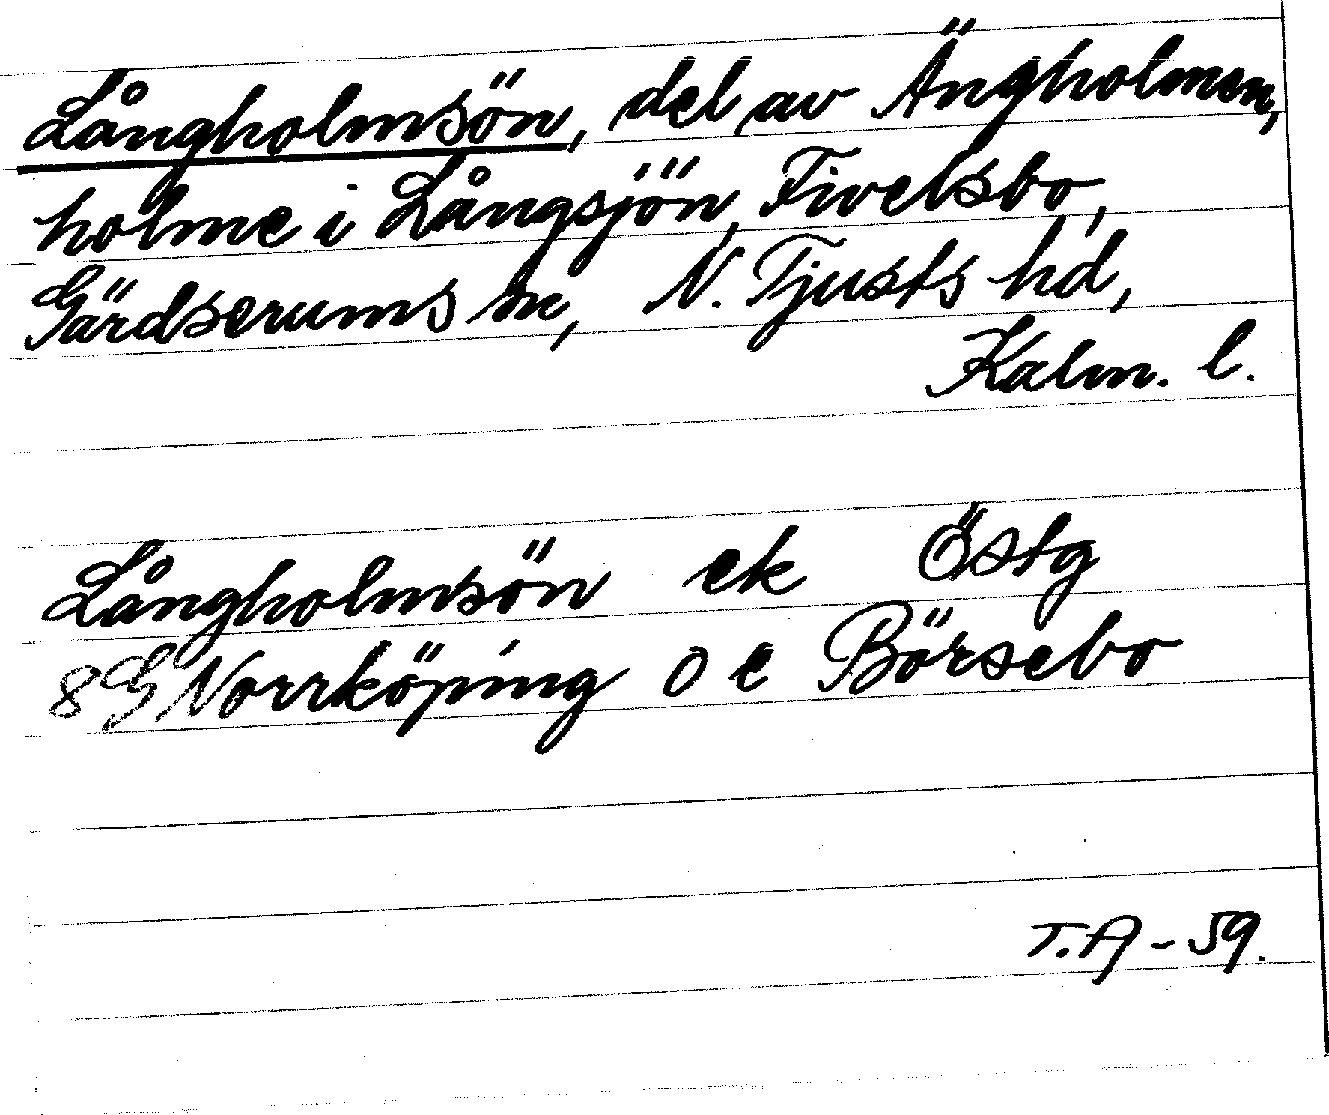 Långholmsön, del av Ängholmen,
holme i Långsjön, Fivelsbo,
Gärdserums sn, N. Tjusts hd,
Kalm. l.
Långholmsön ek Östg
8G Norrköping o e Börsebo
T.A - 59.